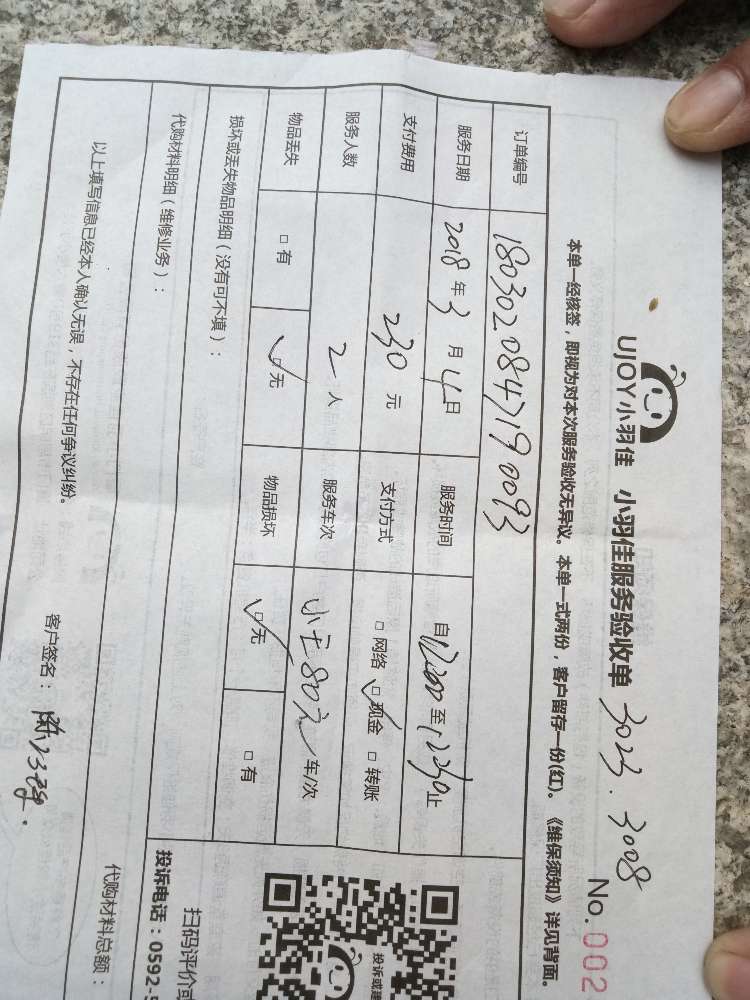 UJOY小羽佳 小羽佳服务验收单 3023. 3008
No.002
本单一经核签，即视为对本次服务验收无异议。本单一式两份，客户留存一份(红)。《维保须知》详见背面。
订单编号 1803020847190093
服务日期 2018年3月4日 服务时间 自12:00至12:30止
支付费用 230元 支付方式 □网络 ☑现金 □转账
服务人数 2人 服务车次 小工80元/车/次
物品丢失 □有 ☑无 物品损坏 ☑无 □有
损坏或丢失物品明细（没有可不填）：
代购材料明细（维修业务）：
代购材料总额：
以上填写信息已经本人确认无误，不存在任何争议纠纷。
客户签名：
扫码评价或
投诉电话：0592-5
投诉或建